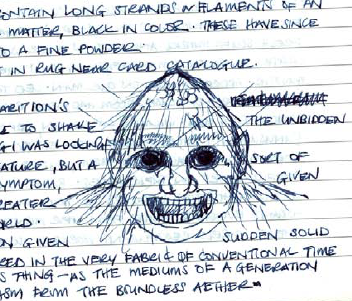 ONTAIN LONG STRANDS OR FILAMENTS OF AN
MATTER, BLACK IN COLOR. THESE HAVE SINCE
TO A FINE POWDER.
T IN RUG NEAR CARD CATALOGUE.
ARITION'S
THE UNBIDDEN
E TO SHAKE
GI WAS LOOKING
EATURE, BUT A SORT OF
YMPTOM, GIVEN
EATER
RLD.
ON GIVEN SUDDEN SOLID
RED IN THE VERY FABRIC OF CONVENTIONAL TIME
S THING—AS THE MEDIUMS OF A GENERATION
ASM FROM THE BOUNDLESS AETHER"